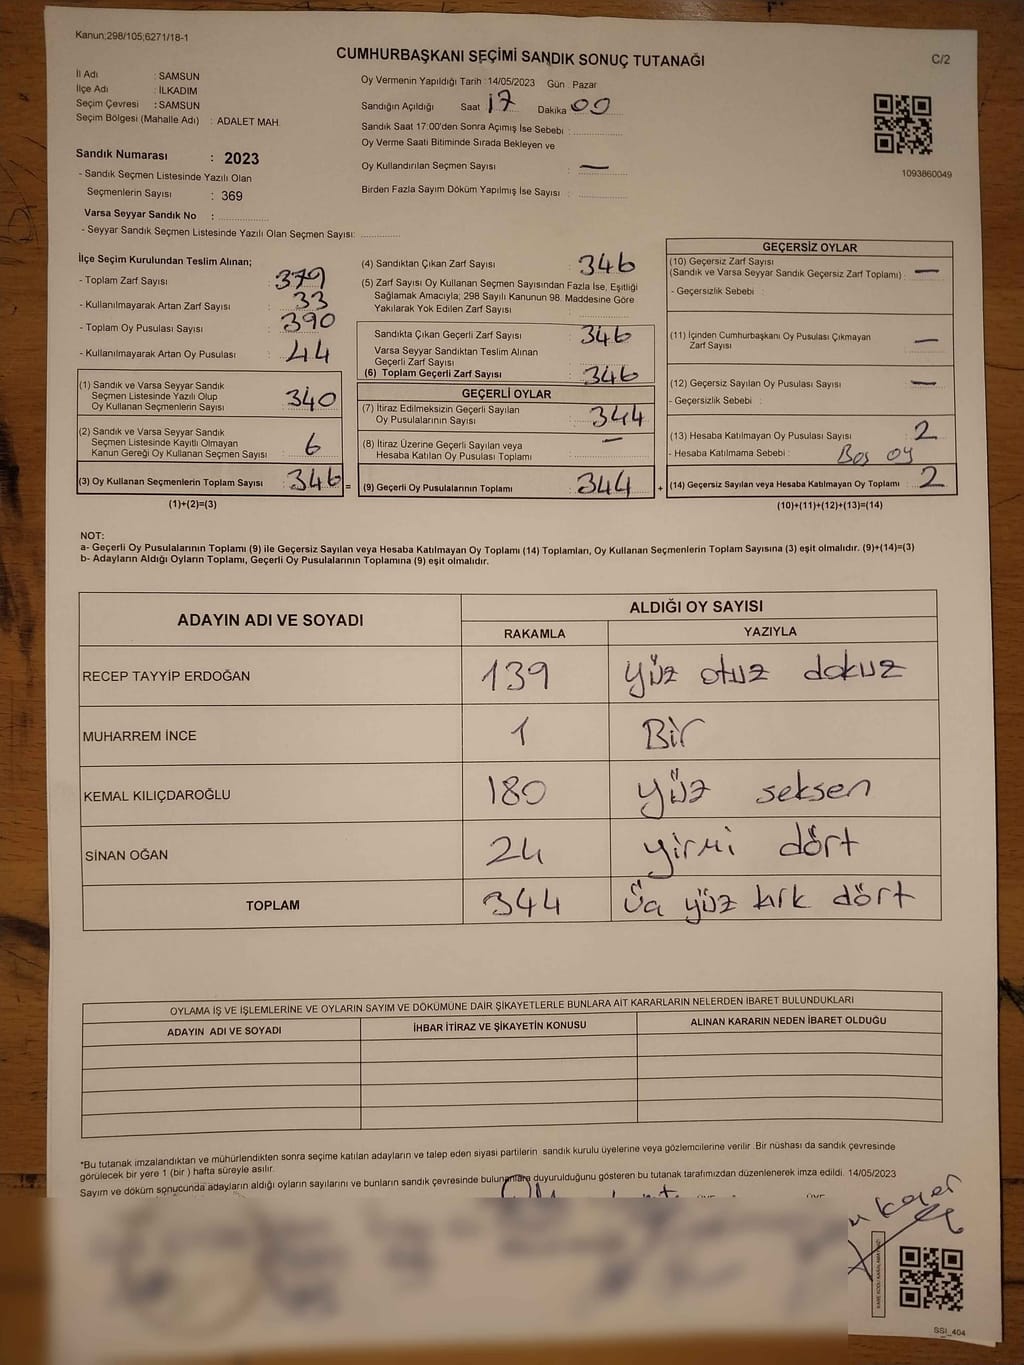 Kanun;298/105;6271/18-1
CUMHURBAŞKANI SEÇİMİ SANDIK SONUÇ TUTANAĞI
C/2
İl Adı : SAMSUN
İlçe Adı : İLKADIM
Seçim Çevresi : SAMSUN
Seçim Bölgesi (Mahalle Adı) : ADALET MAH.
Sandık Numarası : 2023
- Sandık Seçmen Listesinde Yazılı Olan
Seçmenlerin Sayısı : 369
Varsa Seyyar Sandık No :
- Seyyar Sandık Seçmen Listesinde Yazılı Olan Seçmen Sayısı:
Oy Vermenin Yapıldığı Tarih :14/05/2023 Gün : Pazar
Sandığın Açıldığı Saat 17 Dakika 00
Sandık Saat 17:00'den Sonra Açımış İse Sebebi :
Oy Verme Saati Bitiminde Sırada Bekleyen ve
Oy Kullandırılan Seçmen Sayısı : —
Birden Fazla Sayım Döküm Yapılmış İse Sayısı :
1093860049
İlçe Seçim Kurulundan Teslim Alınan;
- Toplam Zarf Sayısı : 379
- Kullanılmayarak Artan Zarf Sayısı : 33
- Toplam Oy Pusulası Sayısı : 390
- Kullanılmayarak Artan Oy Pusulası : 44
(1) Sandık ve Varsa Seyyar Sandık
Seçmen Listesinde Yazılı Olup
Oy Kullanan Seçmenlerin Sayısı : 340
(2) Sandık ve Varsa Seyyar Sandık
Seçmen Listesinde Kayıtlı Olmayan
Kanun Gereği Oy Kullanan Seçmen Sayısı : 6
(3) Oy Kullanan Seçmenlerin Toplam Sayısı : 346 =
(1)+(2)=(3)
(4) Sandıktan Çıkan Zarf Sayısı : 346
(5) Zarf Sayısı Oy Kullanan Seçmen Sayısından Fazla İse, Eşitliği
Sağlamak Amacıyla; 298 Sayılı Kanunun 98. Maddesine Göre
Yakılarak Yok Edilen Zarf Sayısı :
Sandıkta Çıkan Geçerli Zarf Sayısı : 346
Varsa Seyyar Sandıktan Teslim Alınan
Geçerli Zarf Sayısı :
(6) Toplam Geçerli Zarf Sayısı : 346
GEÇERLİ OYLAR
(7) İtiraz Edilmeksizin Geçerli Sayılan
Oy Pusulalarının Sayısı : 344
(8) İtiraz Üzerine Geçerli Sayılan veya
Hesaba Katılan Oy Pusulası Toplamı : —
(9) Geçerli Oy Pusulalarının Toplamı : 344 +
GEÇERSİZ OYLAR
(10) Geçersiz Zarf Sayısı
(Sandık ve Varsa Seyyar Sandık Geçersiz Zarf Toplamı) : —
- Geçersizlik Sebebi :
(11) İçinden Cumhurbaşkanı Oy Pusulası Çıkmayan
Zarf Sayısı : —
(12) Geçersiz Sayılan Oy Pusulası Sayısı : —
- Geçersizlik Sebebi :
(13) Hesaba Katılmayan Oy Pusulası Sayısı : 2
- Hesaba Katılmama Sebebi : Boş oy
(14) Geçersiz Sayılan veya Hesaba Katılmayan Oy Toplamı : 2
(10)+(11)+(12)+(13)=(14)
NOT:
a- Geçerli Oy Pusulalarının Toplamı (9) ile Geçersiz Sayılan veya Hesaba Katılmayan Oy Toplamı (14) Toplamları, Oy Kullanan Seçmenlerin Toplam Sayısına (3) eşit olmalıdır. (9)+(14)=(3)
b- Adayların Aldığı Oyların Toplamı, Geçerli Oy Pusulalarının Toplamına (9) eşit olmalıdır.
ADAYIN ADI VE SOYADI
ALDIĞI OY SAYISI
RAKAMLA YAZIYLA
RECEP TAYYİP ERDOĞAN 139 yüz otuz dokuz
MUHARREM İNCE 1 Bir
KEMAL KILIÇDAROĞLU 180 yüz seksen
SİNAN OĞAN 24 yirmi dört
TOPLAM 344 Üç yüz kırk dört
OYLAMA İŞ VE İŞLEMLERİNE VE OYLARIN SAYIM VE DÖKÜMÜNE DAİR ŞİKAYETLERLE BUNLARA AİT KARARLARIN NELERDEN İBARET BULUNDUKLARI
ADAYIN ADI VE SOYADI İHBAR İTİRAZ VE ŞİKAYETİN KONUSU ALINAN KARARIN NEDEN İBARET OLDUĞU
*Bu tutanak imzalandıktan ve mühürlendikten sonra seçime katılan adayların ve talep eden siyasi partilerin sandık kurulu üyelerine veya gözlemcilerine verilir. Bir nüshası da sandık çevresinde
görülecek bir yere 1 (bir ) hafta süreyle asılır.
Sayım ve döküm sonucunda adayların aldığı oyların sayılarını ve bunların sandık çevresinde bulunanlara duyurulduğunu gösteren bu tutanak tarafımızdan düzenlenerek imza edildi. 14/05/2023
SSI_404